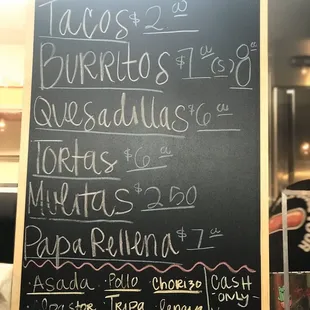 Tacos $2 00
Burritos $7 00 (S) 8 00
Quesadillas $6 00
Tortas $6 00
Mulitas $2 50
Papa Rellena $7 00
Asada · Pollo · Chorizo
CASH
-only-
Pastor Tripa Lengua